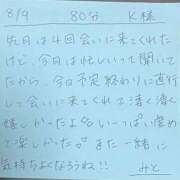 8/9 80分 K様
先月は4回会いに来てくれた
けど、今月は忙しいって聞いて
たから、今日予定終わりに直行
して会いに来てくれて凄く凄く
嬉しかったよ いっぱい虐めて
楽しかった また一緒に
気持ちよくなろうね!! みと